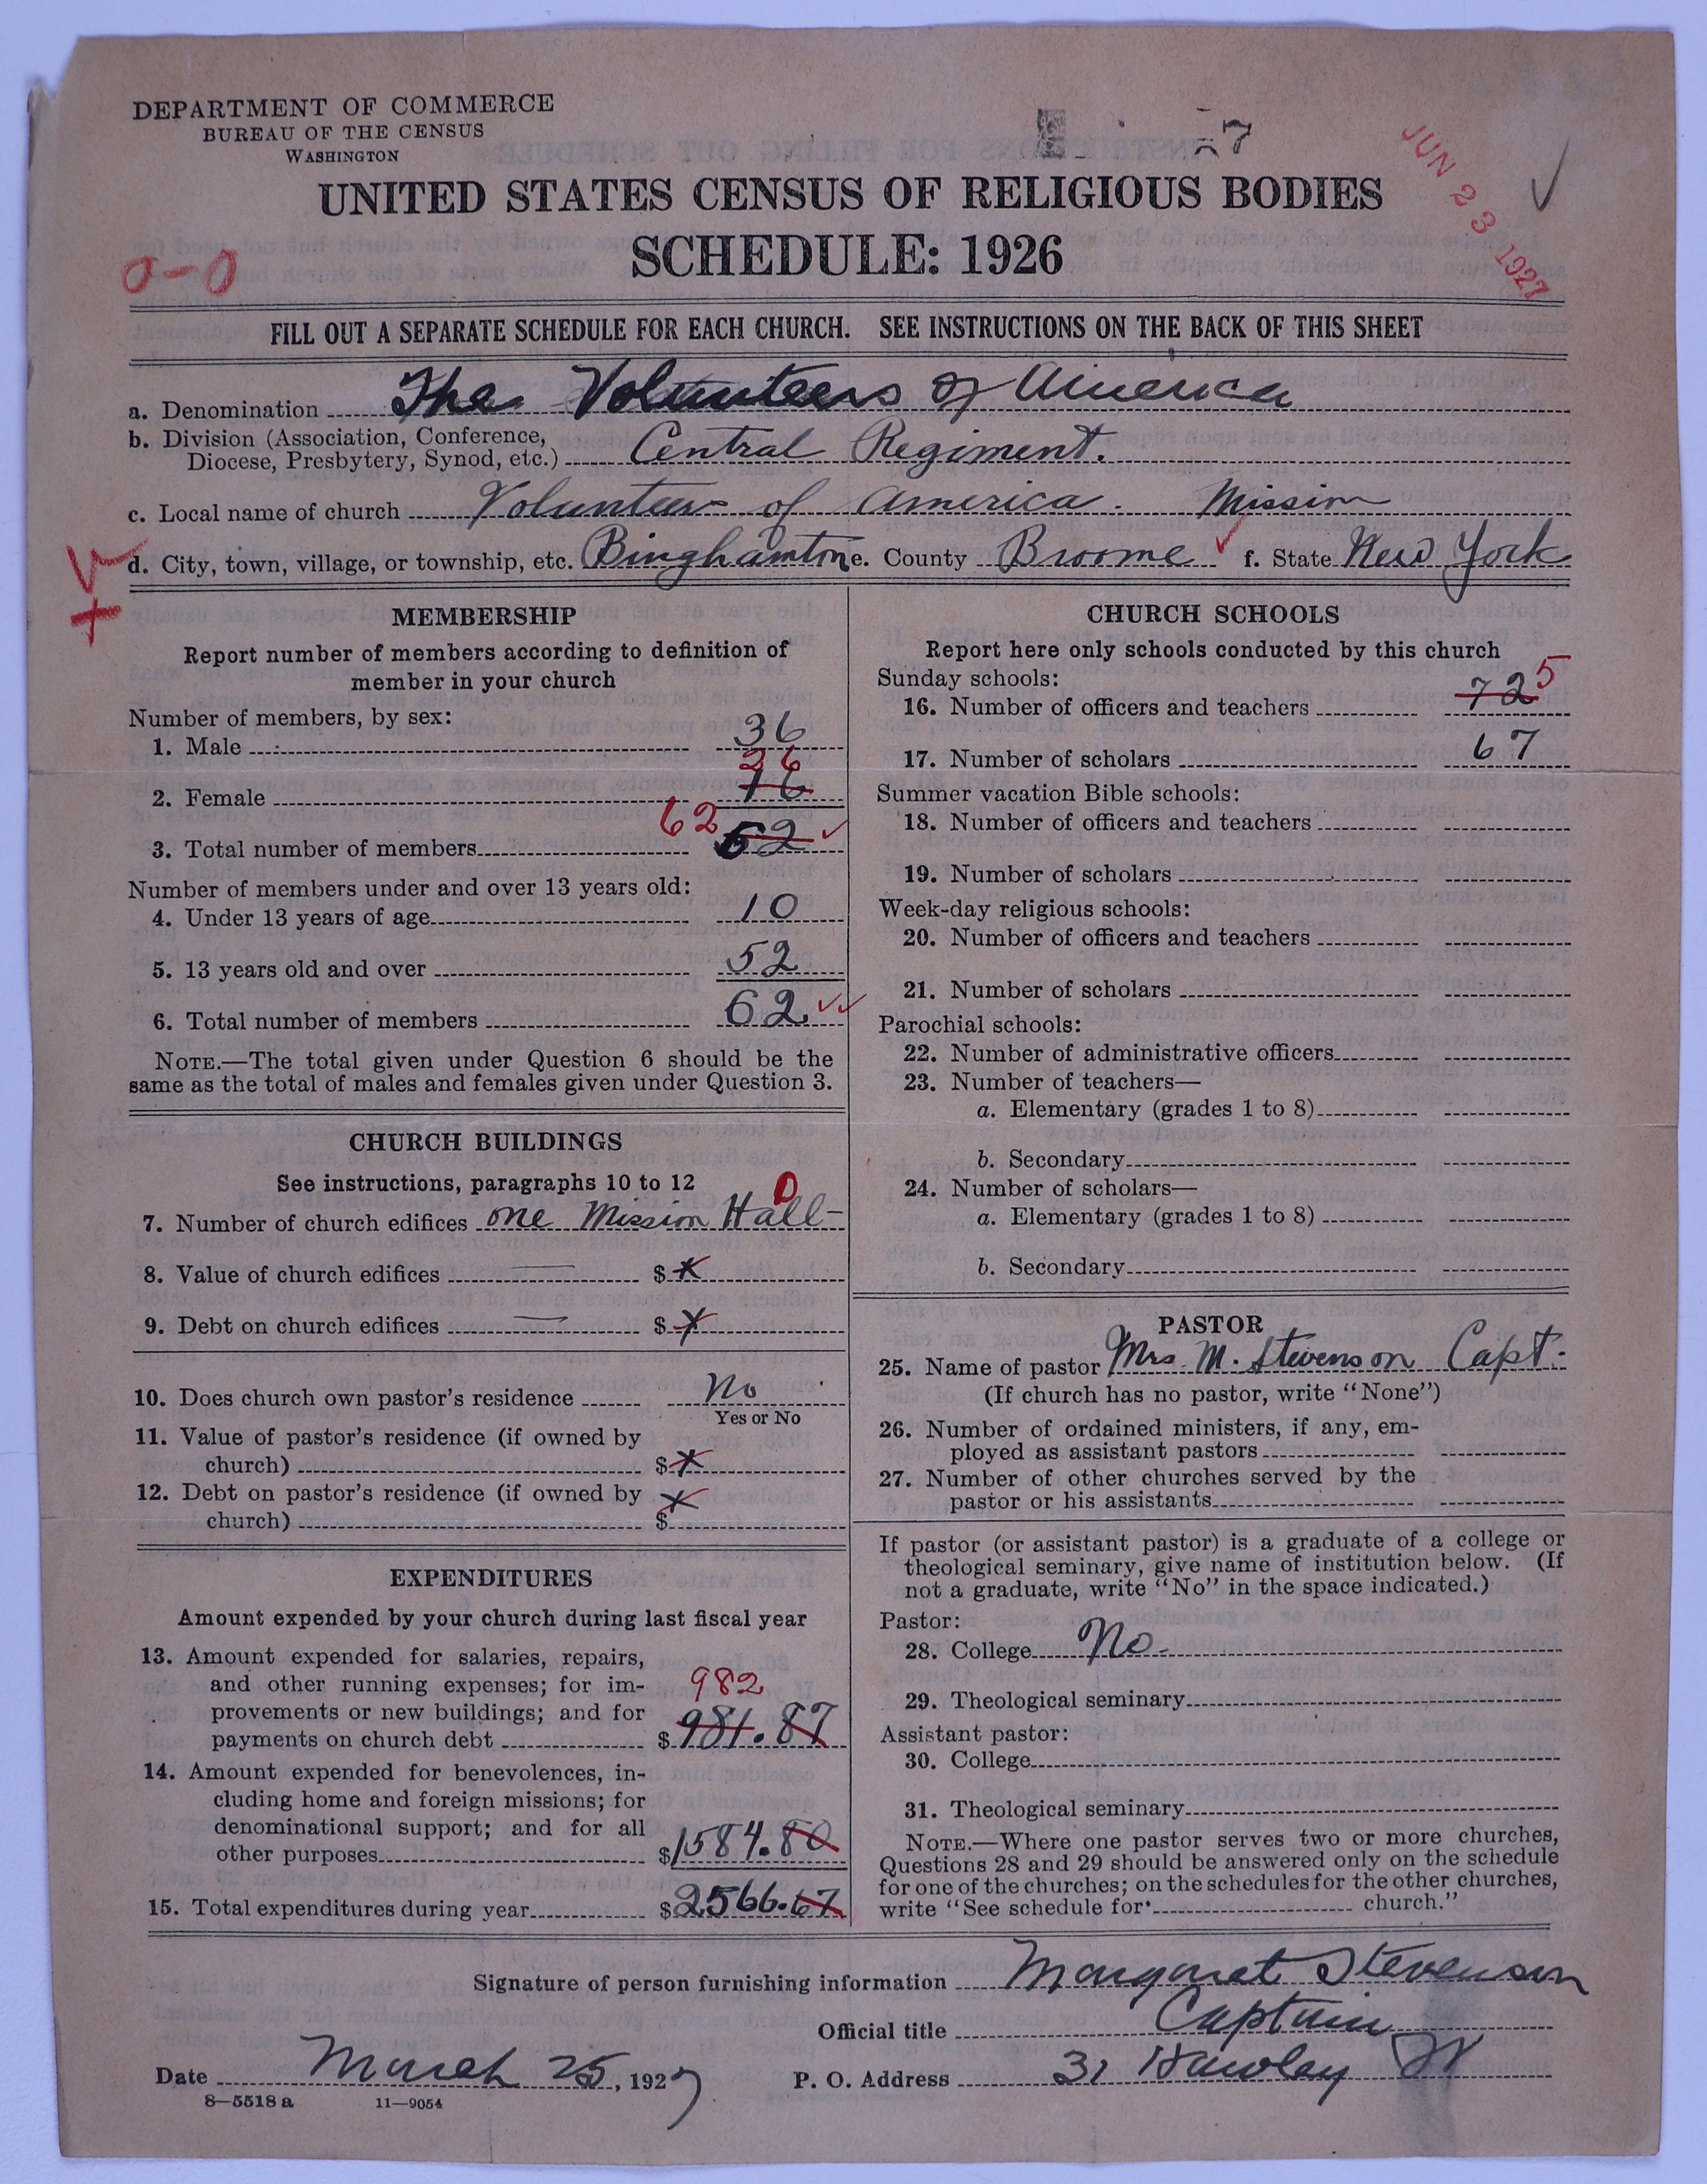 DEPARTMENT OF COMMERCE
BUREAU OF THE CENSUS
WASHINGTON
7
JUN 23 1927
UNITED STATES CENSUS OF RELIGIOUS BODIES
SCHEDULE: 1926
0-0
FILL OUT A SEPARATE SCHEDULE FOR EACH CHURCH. SEE INSTRUCTIONS ON THE BACK OF THIS SHEET
a. Denomination The Volunteers of America
b. Division (Association, Conference,
Diocese, Presbytery, Synod, etc.) Central Regiment.
c. Local name of church Volunteers of America. Mission
d. City, town, village, or township, etc. Binghamton e. County Broome f. State New York
MEMBERSHIP
Report number of members according to definition of
member in your church
Number of members, by sex:
1. Male 36
26
2. Female 16
62
3. Total number of members 52
Number of members under and over 13 years old:
4. Under 13 years of age 10
5. 13 years old and over 52
6. Total number of members 62
NOTE.—The total given under Question 6 should be the
same as the total of males and females given under Question 3.
CHURCH BUILDINGS
See instructions, paragraphs 10 to 12
0
7. Number of church edifices one Mission Hall-
8. Value of church edifices — $ x
9. Debt on church edifices — $ x
10. Does church own pastor's residence No
Yes or No
11. Value of pastor's residence (if owned by
church) $ x
12. Debt on pastor's residence (if owned by
church) $ x
EXPENDITURES
Amount expended by your church during last fiscal year
13. Amount expended for salaries, repairs,
and other running expenses; for im-
982
provements or new buildings; and for
payments on church debt $ 981.87
14. Amount expended for benevolences, in-
cluding home and foreign missions; for
denominational support; and for all
other purposes $ 1584.80
15. Total expenditures during year $ 2566.67
CHURCH SCHOOLS
Report here only schools conducted by this church
Sunday schools:
16. Number of officers and teachers 72 5
17. Number of scholars 67
Summer vacation Bible schools:
18. Number of officers and teachers
19. Number of scholars
Week-day religious schools:
20. Number of officers and teachers
21. Number of scholars
Parochial schools:
22. Number of administrative officers
23. Number of teachers—
a. Elementary (grades 1 to 8)
b. Secondary
24. Number of scholars—
a. Elementary (grades 1 to 8)
b. Secondary
PASTOR
25. Name of pastor Mrs. M. Stevenson Capt.
(If church has no pastor, write "None")
26. Number of ordained ministers, if any, em-
ployed as assistant pastors
27. Number of other churches served by the
pastor or his assistants
If pastor (or assistant pastor) is a graduate of a college or
theological seminary, give name of institution below. (If
not a graduate, write "No" in the space indicated.)
Pastor:
28. College No.
29. Theological seminary
Assistant pastor:
30. College
31. Theological seminary
NOTE.—Where one pastor serves two or more churches,
Questions 28 and 29 should be answered only on the schedule
for one of the churches; on the schedules for the other churches,
write "See schedule for church."
Signature of person furnishing information Margaret Stevenson
Official title Captain
Date March 25, 1927 P. O. Address 31 Hawley St
8—5518 a 11—9054